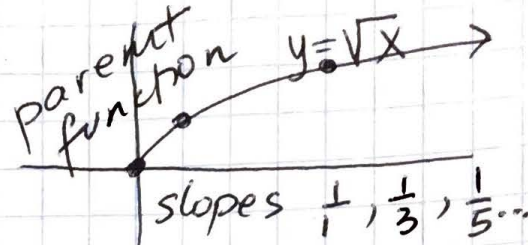 parent
function
y=√x
slopes 1/1, 1/3, 1/5...